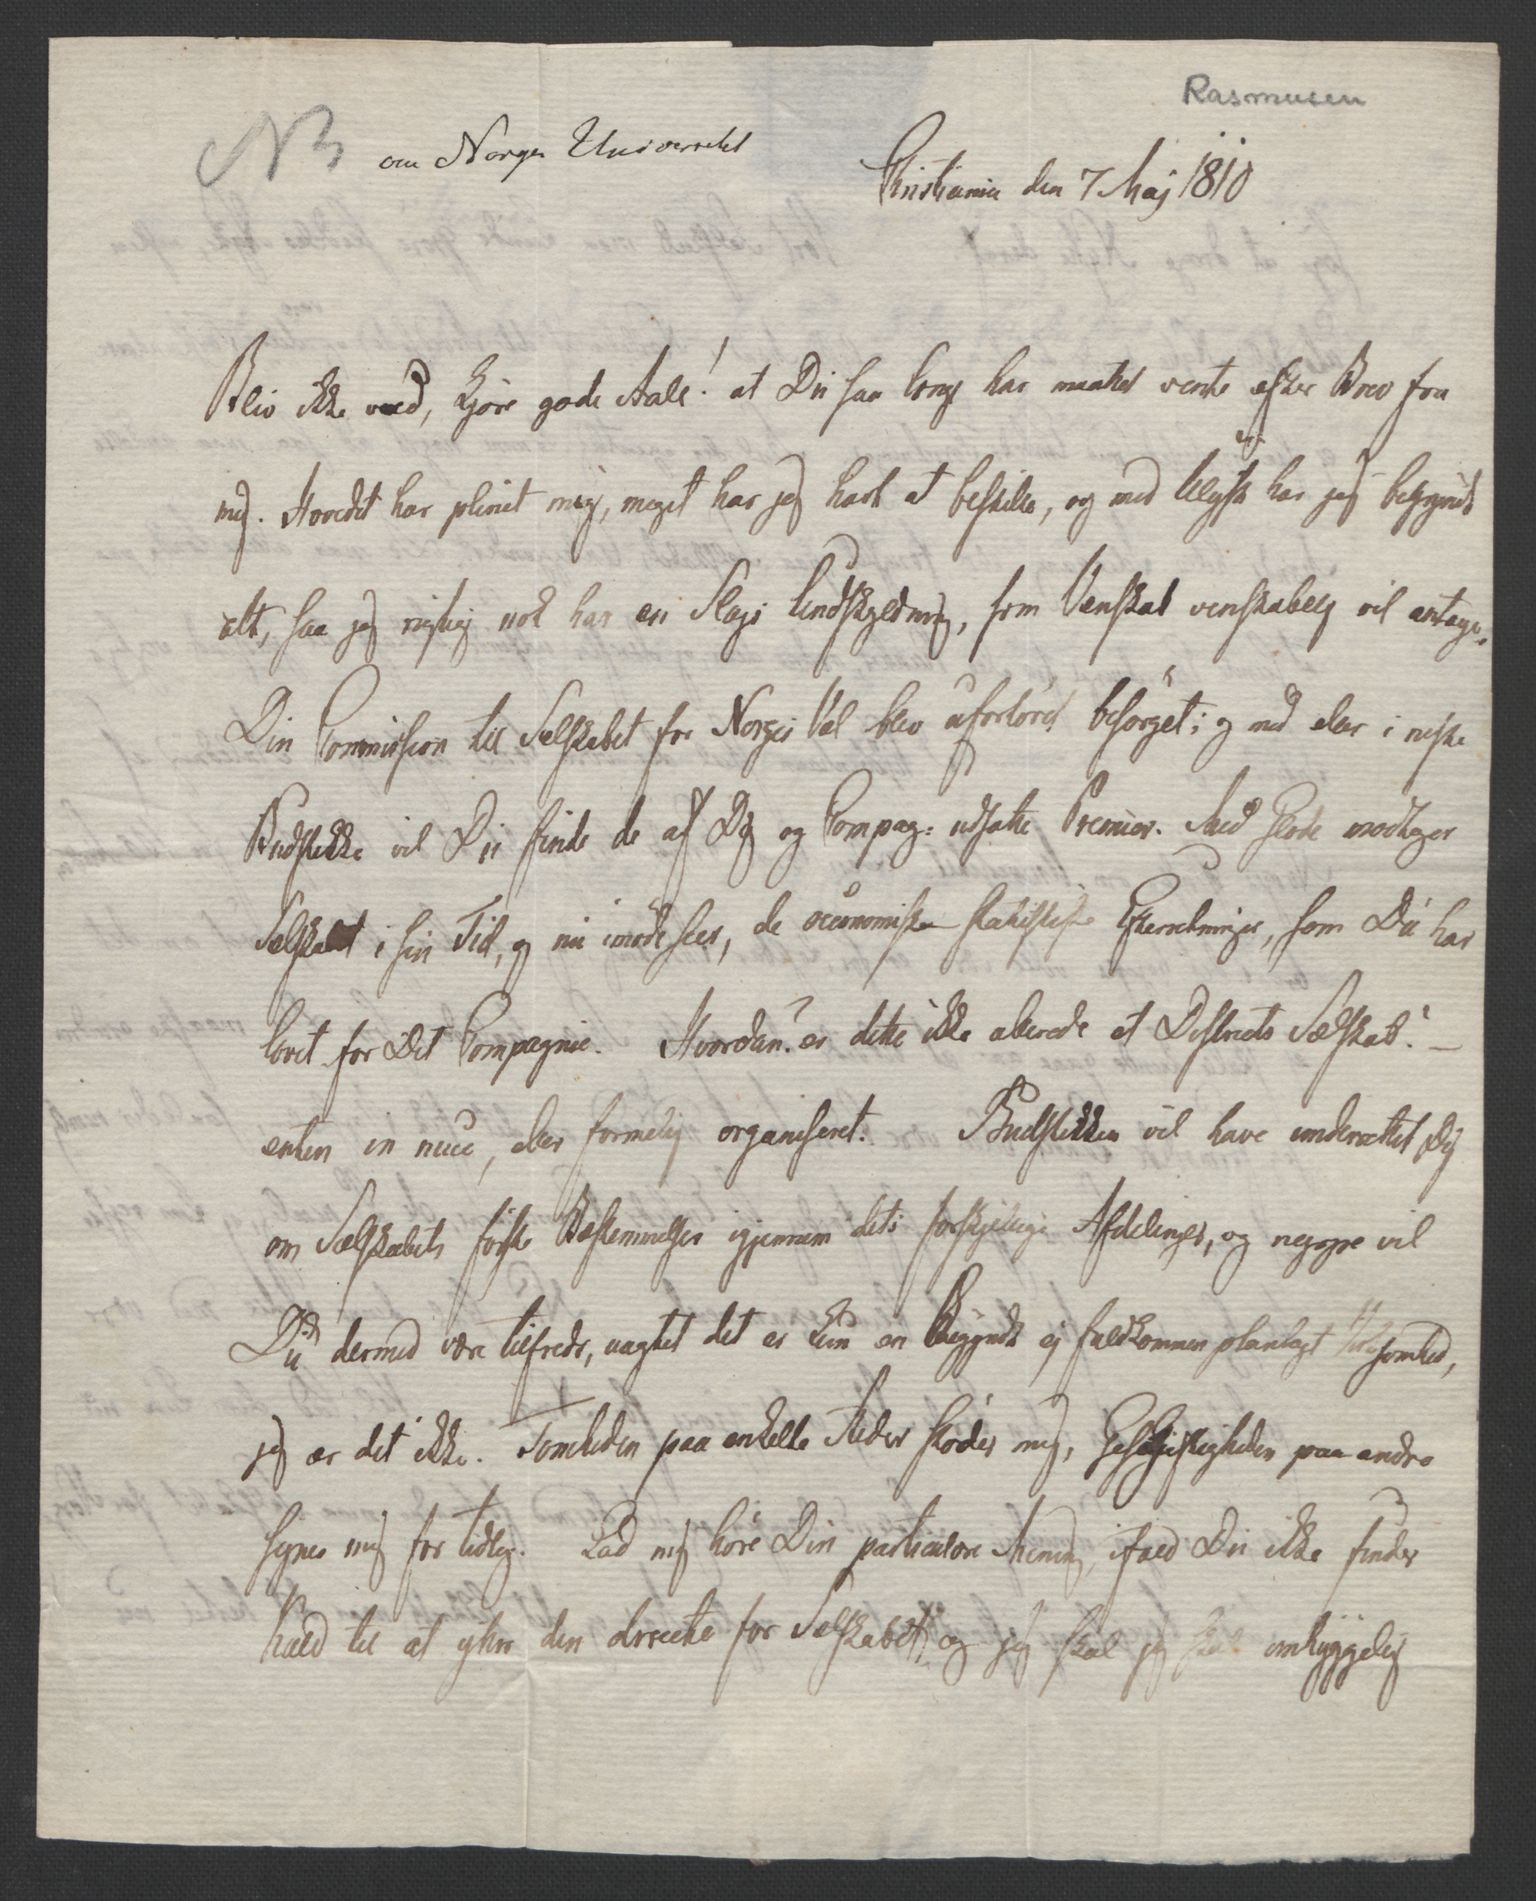 Rasmusen
NB om Norges Universitet
Christiania den 7 Maj 1810
Bliv ikke vred, kjære gode Aall! at Du saa længe har maattet vente efter Brev fra
mig. Hovedet har plinet mig, meget har jeg havt at bestille, og med Ulyst har jeg begyndt
alt, saa jeg rigtig nok har en Slags Undskyldning, som Venskab venskabelig vil antage.
Din Commission til Selskabet for Norges Vel blev ufortøvet besørget; og med eller i næste
Budstikke vil Du finde de af Dig og Compag: udsatte Premier. Med Glæde modtager
Selskabet i sin Tid, og nu imødeseer, de oeconomiske statistiske Efterretninger, som Du har
lovet for Dit Compagnie. Hvordan? er dette ikke allerede et Districts Selskab? —
enten in nuce, eller formelig organiseret. Budstikken vil have underrettet Dig
om Selskabets første Bestemmelser igjennem dets forskjellige Afdelinger, og neppe vil
Du dermed være tilfreds, uagtet det er kun en begyndt ej fuldkommen planlagt Virksomhed,
jeg er det ikke. Tomheden paa enkelte Steder støder mig, Geskjæftigheden paa andre
synes mig for tidlig. Lad mig høre Din particulære Mening, ifald Du ikke finder
Kald til at yttre den directe for Selskabet, og jeg skal jeg skal omhyggelig